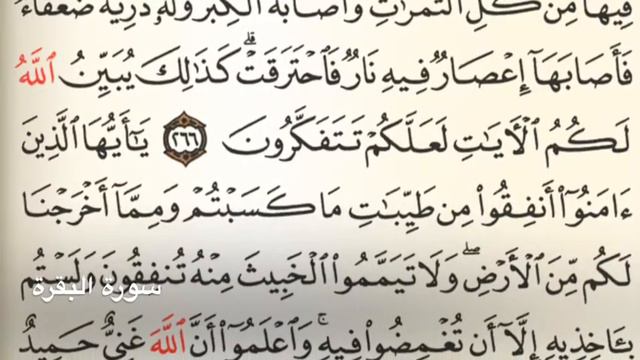 فِيهَا مِن كُلِّ ٱلثَّمَرَٰتِ وَأَصَابَهُ ٱلْكِبَرُ وَلَهُۥ ذُرِّيَّةٌ ضُعَفَآءُ
فَأَصَابَهَآ إِعْصَارٌ فِيهِ نَارٌ فَٱحْتَرَقَتْ ۗ كَذَٰلِكَ يُبَيِّنُ ٱللَّهُ
لَكُمُ ٱلْأٓيَٰتِ لَعَلَّكُمْ تَتَفَكَّرُونَ ٢٦٦ يَٰٓأَيُّهَا ٱلَّذِينَ
ءَامَنُوٓا۟ أَنفِقُوا۟ مِن طَيِّبَٰتِ مَا كَسَبْتُمْ وَمِمَّآ أَخْرَجْنَا
لَكُم مِّنَ ٱلْأَرْضِ ۖ وَلَا تَيَمَّمُوا۟ ٱلْخَبِيثَ مِنْهُ تُنفِقُونَ وَلَسْتُم
سورة البقرة
بِـَٔاخِذِيهِ إِلَّآ أَن تُغْمِضُوا۟ فِيهِ ۚ وَٱعْلَمُوٓا۟ أَنَّ ٱللَّهَ غَنِىٌّ حَمِيدٌ